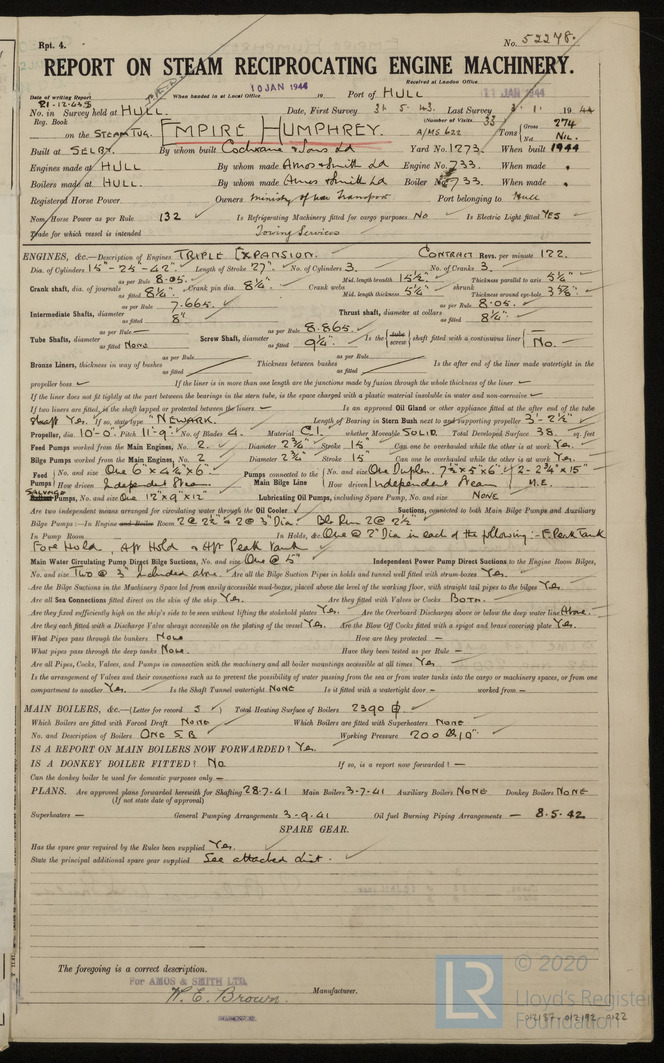 Rpt. 4. No. 52278.
REPORT ON STEAM RECIPROCATING ENGINE MACHINERY.
Received at London Office
Date of writing Report 31-12-43 When handed in at Local Office 10 JAN 1944 19 Port of HULL 11 JAN 1944
No. in Survey held at HULL. Date, First Survey 31.5.43. Last Survey 3.1. 1944
Reg. Book (Number of Visits 33)
on the STEAM TUG. EMPIRE HUMPHREY. A/MS 622 Tons Gross 274 Net NIL.
Built at SELBY. By whom built Cochrane & Sons Ld Yard No. 1273. When built 1944
Engines made at HULL By whom made Amos & Smith Ld Engine No. 733. When made "
Boilers made at HULL. By whom made Amos & Smith Ld Boiler No. 733. When made "
Registered Horse Power Owners Ministry of War Transport Port belonging to Hull
Nom. Horse Power as per Rule 132 Is Refrigerating Machinery fitted for cargo purposes No Is Electric Light fitted YES
Trade for which vessel is intended Towing Services
ENGINES, &c.—Description of Engines TRIPLE EXPANSION. CONTRACT Revs. per minute 122.
Dia. of Cylinders 15"-25"-42". Length of Stroke 27". No. of Cylinders 3. No. of Cranks 3.
Crank shaft, dia. of journals as per Rule 8.05. as fitted 8¼". Crank pin dia. 8¼". Crank webs Mid. length breadth 15½" Mid. length thickness 5¼" shrunk Thickness parallel to axis 5¼" Thickness around eye-hole 3⅝"
Intermediate Shafts, diameter as per Rule 7.665. as fitted 8" Thrust shaft, diameter at collars as per Rule 8.05. as fitted 8¼"
Tube Shafts, diameter as per Rule — as fitted NONE Screw Shaft, diameter as per Rule 8.865. as fitted 9¼" Is the {tube screw} shaft fitted with a continuous liner { No.
Bronze Liners, thickness in way of bushes as per Rule as fitted Thickness between bushes as per Rule as fitted Is the after end of the liner made watertight in the
propeller boss If the liner is in more than one length are the junctions made by fusion through the whole thickness of the liner
If the liner does not fit tightly at the part between the bearings in the stern tube, is the space charged with a plastic material insoluble in water and non-corrosive
If two liners are fitted, is the shaft lapped or protected between the liners Is an approved Oil Gland or other appliance fitted at the after end of the tube
shaft Yes. If so, state type "NEWARK. Length of Bearing in Stern Bush next to and supporting propeller 3'-2½"
Propeller, dia. 10'-0" Pitch 11'-9" No. of Blades 4. Material C.I. whether Moveable SOLID Total Developed Surface 38 sq. feet
Feed Pumps worked from the Main Engines, No. 2. Diameter 2¾" Stroke 15" Can one be overhauled while the other is at work Yes.
Bilge Pumps worked from the Main Engines, No. 2 Diameter 2¾" Stroke 15" Can one be overhauled while the other is at work Yes.
Feed Pumps { No. and size One 6"x4¼"x6" How driven Independent Steam Pumps connected to the Main Bilge Line { No. and size One Duplex. 7½"x5"x6" & 2-2¾"x15" How driven Independent Steam M.E.
SALVAGE Pumps, No. and size One 12"x9"x12" Lubricating Oil Pumps, including Spare Pump, No. and size NONE
Are two independent means arranged for circulating water through the Oil Cooler Suctions, connected to both Main Bilge Pumps and Auxiliary
Bilge Pumps:—In Engine and Boiler Room 2 @ 2½" & 2 @ 3" Dia. Blr Rm 2 @ 2½"
In Pump Room In Holds, &c. One @ 2" Dia in each of the following:- F. Peak Tank
Fore Hold, Aft Hold & Aft Peak Tank
Main Water Circulating Pump Direct Bilge Suctions, No. and size One @ 5" Independent Power Pump Direct Suctions to the Engine Room Bilges,
No. and size Two @ 3" Included above. Are all the Bilge Suction Pipes in holds and tunnel well fitted with strum-boxes Yes.
Are the Bilge Suctions in the Machinery Space led from easily accessible mud-boxes, placed above the level of the working floor, with straight tail pipes to the bilges Yes.
Are all Sea Connections fitted direct on the skin of the ship Yes. Are they fitted with Valves or Cocks BOTH.
Are they fixed sufficiently high on the ship's side to be seen without lifting the stokehold plates Yes. Are the Overboard Discharges above or below the deep water line Above.
Are they each fitted with a Discharge Valve always accessible on the plating of the vessel Yes. Are the Blow Off Cocks fitted with a spigot and brass covering plate Yes.
What Pipes pass through the bunkers None How are they protected —
What pipes pass through the deep tanks None. Have they been tested as per Rule —
Are all Pipes, Cocks, Valves, and Pumps in connection with the machinery and all boiler mountings accessible at all times Yes
Is the arrangement of Valves and their connections such as to prevent the possibility of water passing from the sea or from water tanks into the cargo or machinery spaces, or from one
compartment to another Yes. Is the Shaft Tunnel watertight NONE Is it fitted with a watertight door — worked from —
MAIN BOILERS, &c.—(Letter for record S ) Total Heating Surface of Boilers 2390
Which Boilers are fitted with Forced Draft NONE Which Boilers are fitted with Superheaters NONE
No. and Description of Boilers ONE S.B Working Pressure 200 lb/□"
IS A REPORT ON MAIN BOILERS NOW FORWARDED? Yes.
IS A DONKEY BOILER FITTED? No If so, is a report now forwarded? —
Can the donkey boiler be used for domestic purposes only —
PLANS. Are approved plans forwarded herewith for Shafting 28-7-41 Main Boilers 3-7-41 Auxiliary Boilers NONE Donkey Boilers NONE
(If not state date of approval)
Superheaters — General Pumping Arrangements 3-9-41 Oil fuel Burning Piping Arrangements — 8.5.42
SPARE GEAR.
Has the spare gear required by the Rules been supplied Yes.
State the principal additional spare gear supplied See attached list.
The foregoing is a correct description.
For AMOS & SMITH LTD.
W. E. Brown. Manufacturer.
LR © 2020
Lloyd's Register
Foundation
012187-012192-0122